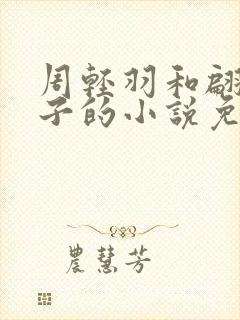 周輕羽和翩
子的小說免
農慧芳